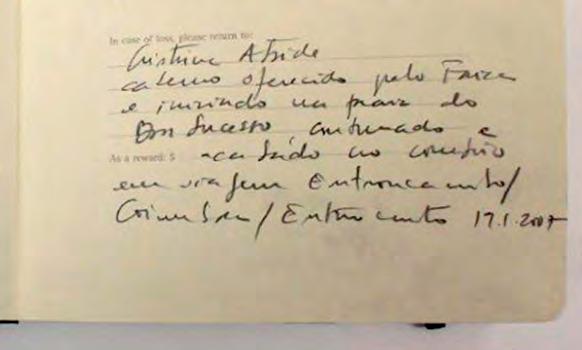 In case of loss, please return to:
Cristina Ataíde
caderno oferecido pelo
e iniciado na praia do
Bom Sucesso, continuado e
As a reward: $ acabado no comboio
em viagem Entroncamento/
Coimbra/Entroncamento 17.1.2007